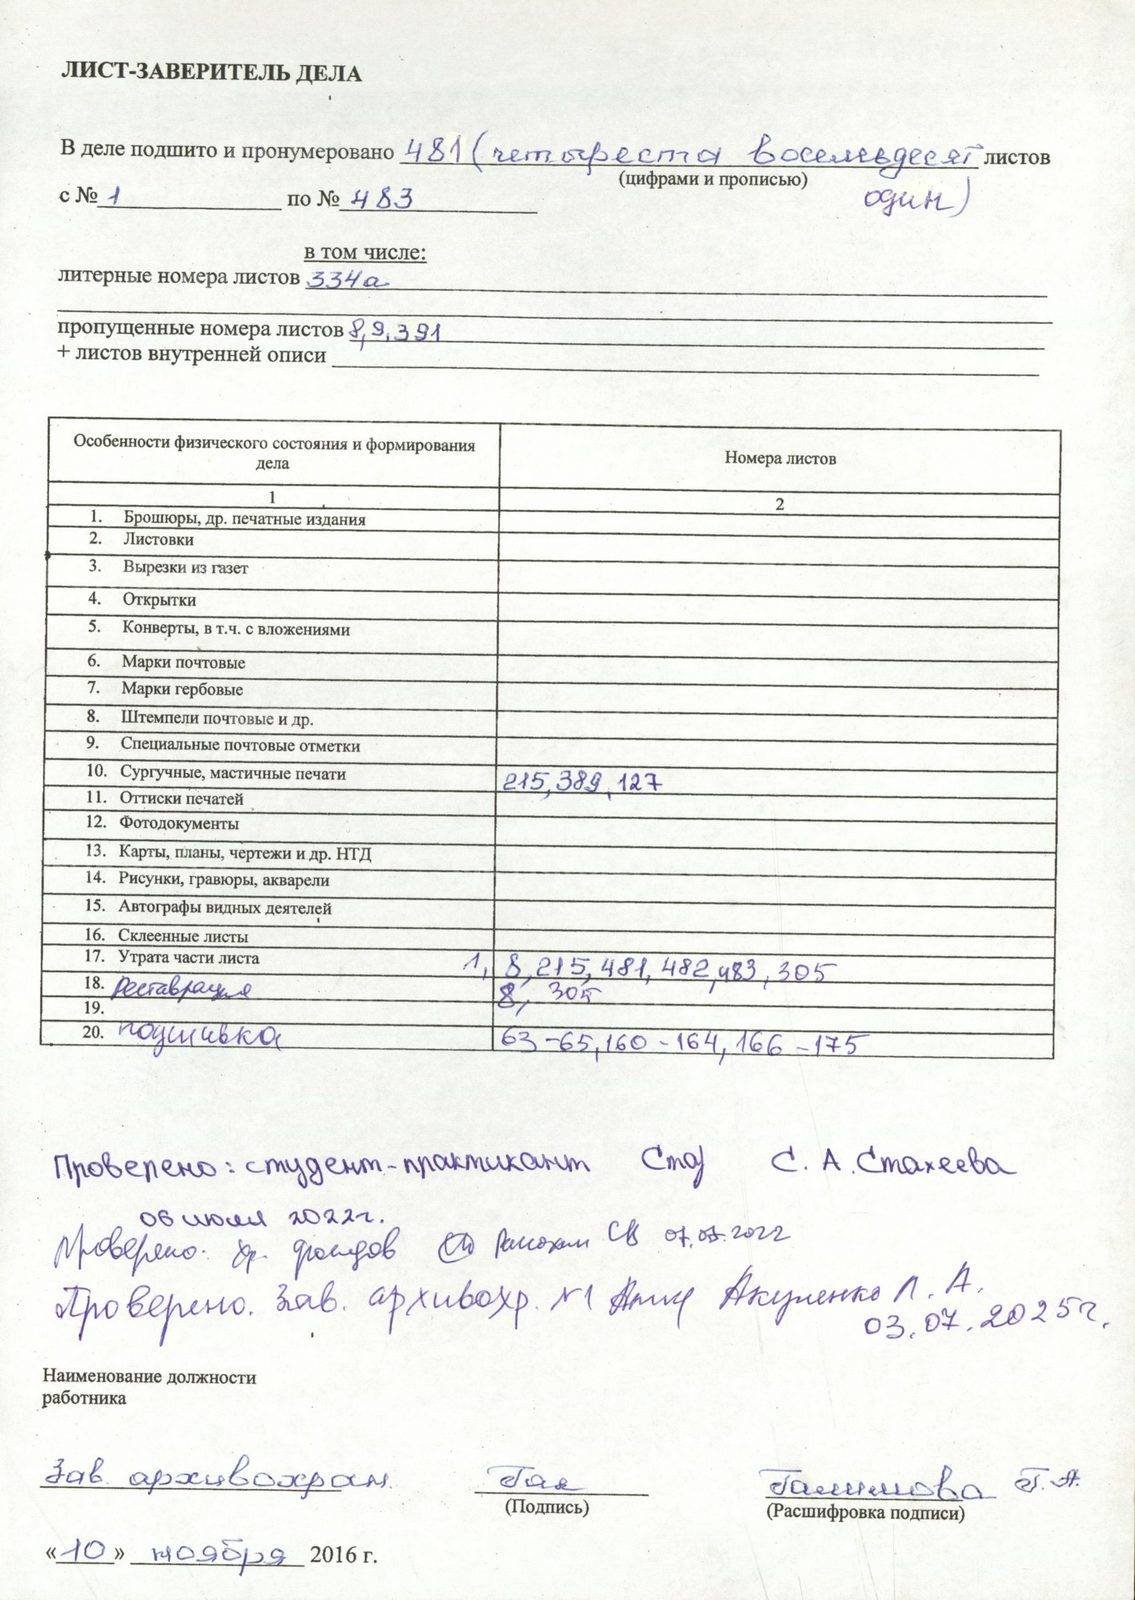 ЛИСТ-ЗАВЕРИТЕЛЬ ДЕЛА
В деле подшито и пронумеровано 481 (четыреста восемьдесят листов
(цифрами и прописью)
один)
с № 1 по № 483
в том числе:
литерные номера листов 334а
пропущенные номера листов 8, 9, 391
+ листов внутренней описи
Особенности физического состояния и формирования дела Номера листов
1 2
1. Брошюры, др. печатные издания
2. Листовки
3. Вырезки из газет
4. Открытки
5. Конверты, в т.ч. с вложениями
6. Марки почтовые
7. Марки гербовые
8. Штемпели почтовые и др.
9. Специальные почтовые отметки
10. Сургучные, мастичные печати 215, 389, 127
11. Оттиски печатей
12. Фотодокументы
13. Карты, планы, чертежи и др. НТД
14. Рисунки, гравюры, акварели
15. Автографы видных деятелей
16. Склеенные листы
17. Утрата части листа 1, 8, 215, 481, 482, 483, 305
18. Реставрация 8, 305
19.
20. подшивка 63-65, 160-164, 166-175
Проверено: студент-практикант С. А. Стахеева
06 июля 2022г.
Проверено. хр. фондов 07.07.2022
Проверено. Зав. архивохр. №1 Акуленко Л. А.
03.07.2025г.
Наименование должности
работника
Зав. архивохран. Гал Галимова Г.А.
(Подпись) (Расшифровка подписи)
«10» ноября 2016 г.